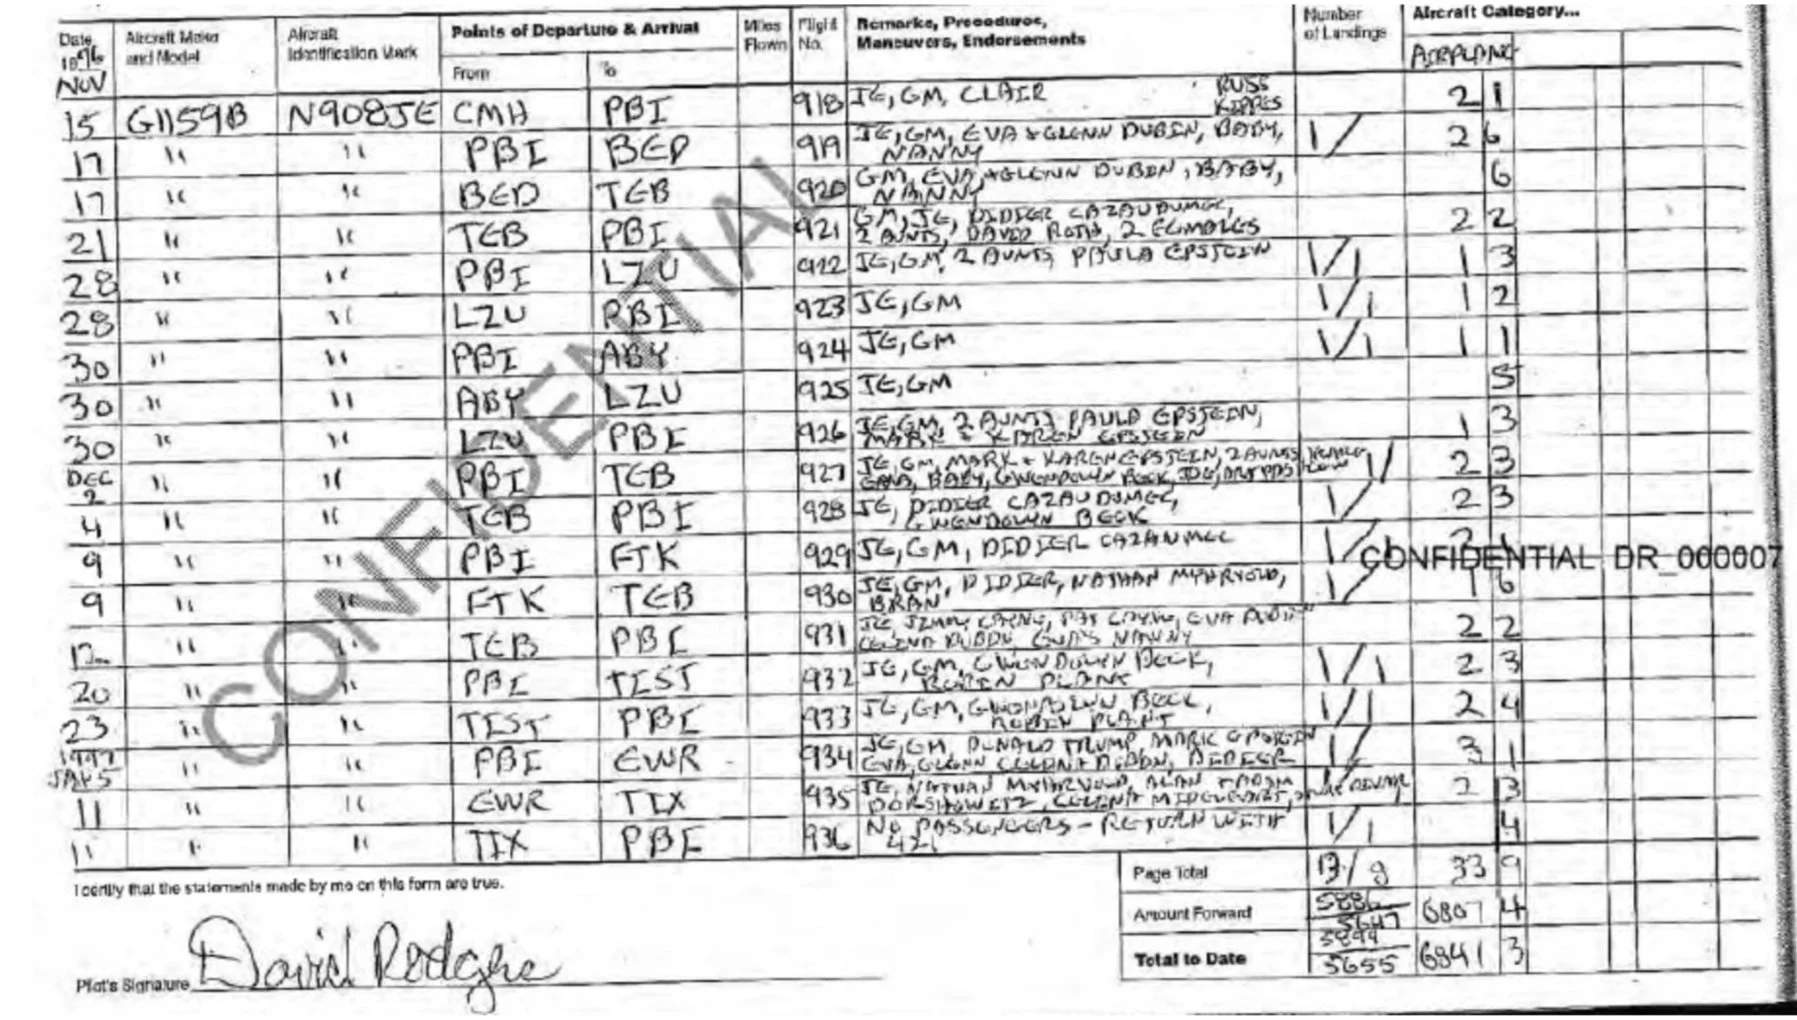 Date 1996 Aircraft Make and Model Aircraft Identification Mark Points of Departure & Arrival Miles Flown Flight No. Remarks, Procedures, Maneuvers, Endorsements Number of Landings Aircraft Category...
NOV From To AIRPLANE
15 G1159B N908JE CMH PBI 918 JE, GM, CLAIR RUSS KIPPES 2 1
17 " " PBI BED 919 JE, GM, EVA & GLENN DUBIN, BABY, NANNY 1/ 2 6
17 " " BED TEB 920 GM, EVA + GLENN DUBIN, BABY, NANNY 6
21 " " TEB PBI 921 GM, JE, DIDIER CAZAUDUMEC, 2 AUNTS, DAVID ROTH, 2 FEMALES 2 2
28 " " PBI LZU 922 JE, GM, 2 AUNTS PAULA EPSTEIN 1/1 1 3
28 " " LZU PBI 923 JE, GM 1/1 1 2
30 " " PBI ABY 924 JE, GM 1/1 1 1
30 " " ABY LZU 925 JE, GM 5
30 " " LZU PBI 926 JE, GM, 2 AUNTS PAULA EPSTEIN, MARK & KAREN EPSTEIN 1 3
DEC 2 " " PBI TEB 927 JE, GM, MARK + KAREN EPSTEIN, 2 AUNTS, BABY, GWENDOLYN BECK, JOE, 1/ 2 3
4 " " TEB PBI 928 JE, DIDIER CAZAUDUMEC, GWENDOLYN BECK 1/ 2 3
9 " " PBI FTK 929 JE, GM, DIDIER CAZANMEC 1/
CONFIDENTIAL DR_000007
9 " " FTK TEB 930 JE, GM, DIDIER, NATHAN MYHRVOLD, BRAN 1/ 1 6
12 " " TEB PBI 931 JE JIMMY CAYNE, PAT CAYNE, EVA DUBIN CELINA DUBIN, EVA'S NANNY 2 2
20 " " PBI TIST 932 JE, GM, GWENDOLYN BECK, ROBIN PLANT 1/1 2 3
23 " " TIST PBI 933 JE, GM, GWENDOLYN BECK, ROBIN PLANT 1/1 2 4
1997 JAN 5 " " PBI EWR 934 JE, GM, DONALD TRUMP MARK EPSTEIN EVA, GLENN CELINA DUBIN, DIDIER 1/ 3 1
11 " " EWR TIX 935 JE, NATHAN MYHRVOLD, ALAN DORSHOWITZ, CELINA MIDELFART, 2 3
11 " " TIX PBI 936 NO PASSENGERS - RETURN WITH 421 1/1 4
CONFIDENTIAL
I certify that the statements made by me on this form are true.
Page Total 13/8 33 9
Amount Forward 5886 5647 6807 4
Total to Date 5899 5655 6841 3
Pilot's Signature David Rodgers